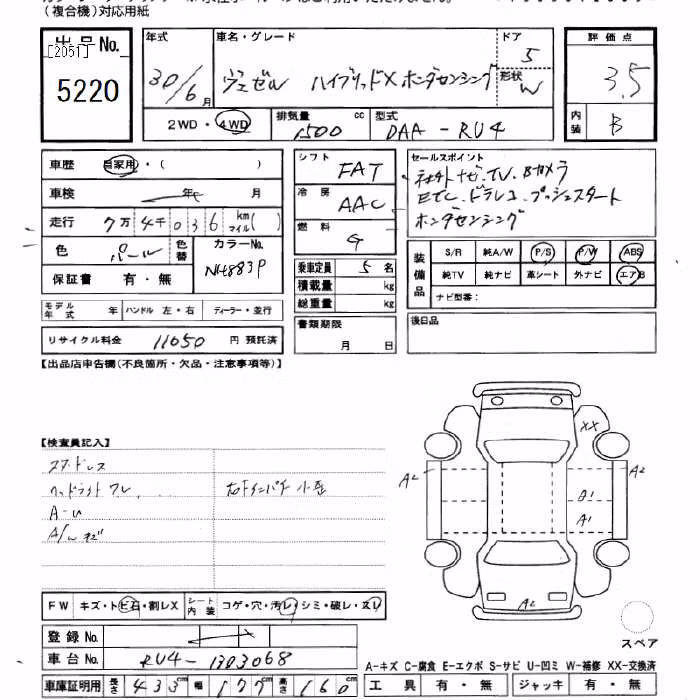 (複合機)対応用紙
出品No.
[2051]
5220
年式
30/6月
車名・グレード
ヴェゼル ハイブリッドXホンダセンシング
ドア
5
形状
W
評価点
3.5
内装
B
2WD・4WD
排気量
1500 cc
型式
DAA-RU4
車歴 自家用・( )
車検 年 月
走行 7万4千036 km マイル( )
色 パール 色替
カラーNo.
NH883P
保証書 有・無
モデル年式 年 ハンドル 左・右 ディーラー・並行
リサイクル料金 11050 円 預託済
シフト FAT
冷房 AAC
燃料 G
乗車定員 5 名
積載量 kg
総重量 kg
書類期限
月 日
セールスポイント
社外ナビ.TV.Bカメラ
ETC.ドラレコ.プッシュスタート
ホンダセンシング
装備品
S/R 純A/W P/S P/W ABS
純TV 純ナビ 革シート 外ナビ エアB
ナビ型番:
後日品
【出品店申告欄(不良箇所・欠品・注意事項等)】
【検査員記入】
スタッドレス
ヘッドライトワレ
A-U
XX
A2
A2
A1
A2
FW キズ・トビ石・割レX
シート内装 コゲ・穴・汚レ・シミ・破レ・スレ
登録No.
車台No. RU4-1303068
車庫証明用 長さ 433 幅 177 高さ 160 cm
スペア
A-キズ C-腐食 E-エクボ S-サビ U-凹ミ W-補修 XX-交換済
工具 有・無 ジャッキ 有・無